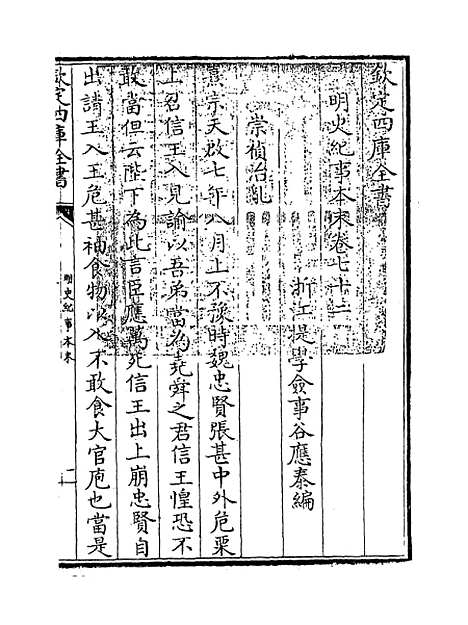 欽定四庫全書
明史紀事本末卷七十二
浙江提學僉事谷應泰編
崇禎治亂
熹宗天啟七年八月上不豫時魏忠賢張甚中外危栗
上召信王入見諭以吾弟當為堯舜之君信王惶恐不
敢當但云陛下為此言臣應萬死信王出上崩忠賢自
出請王入王危甚袖食物以入不敢食大官庖也當是
欽定四庫全書
明史紀事本末
一